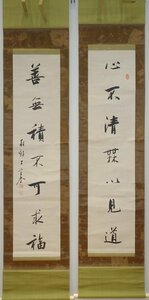 心不清無以見道
善無積不可求福